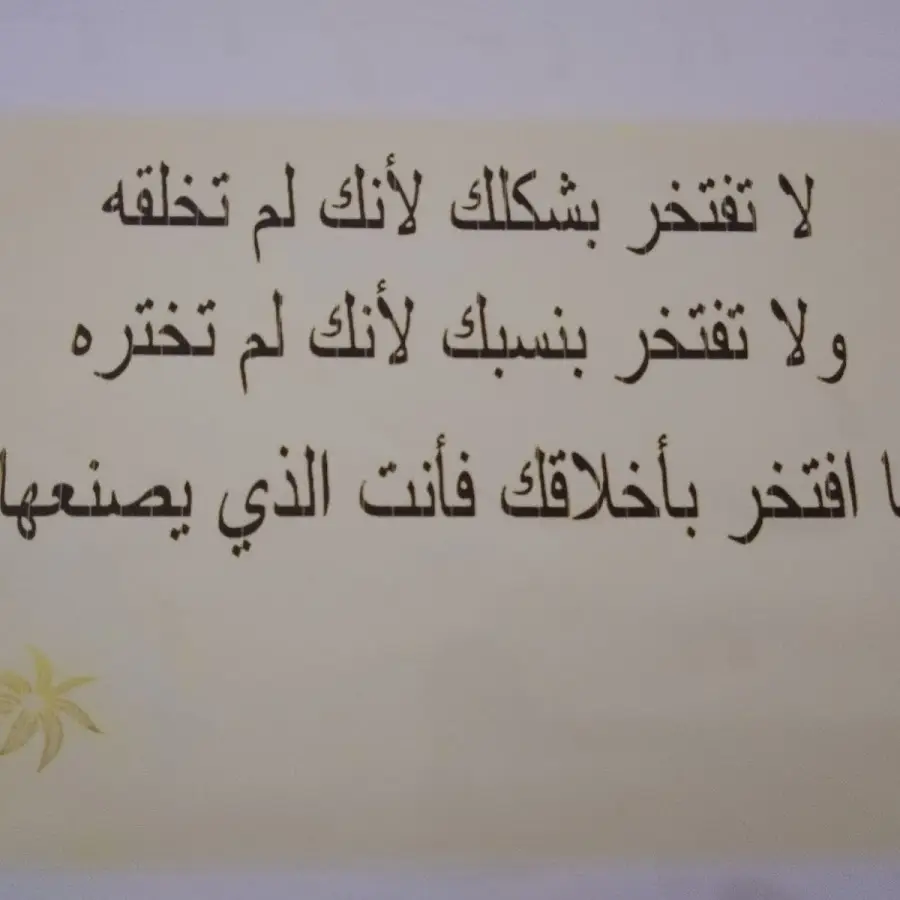 لا تفتخر بشكلك لأنك لم تخلقه
ولا تفتخر بنسبك لأنك لم تختره
افتخر بأخلاقك فأنت الذي يصنعها